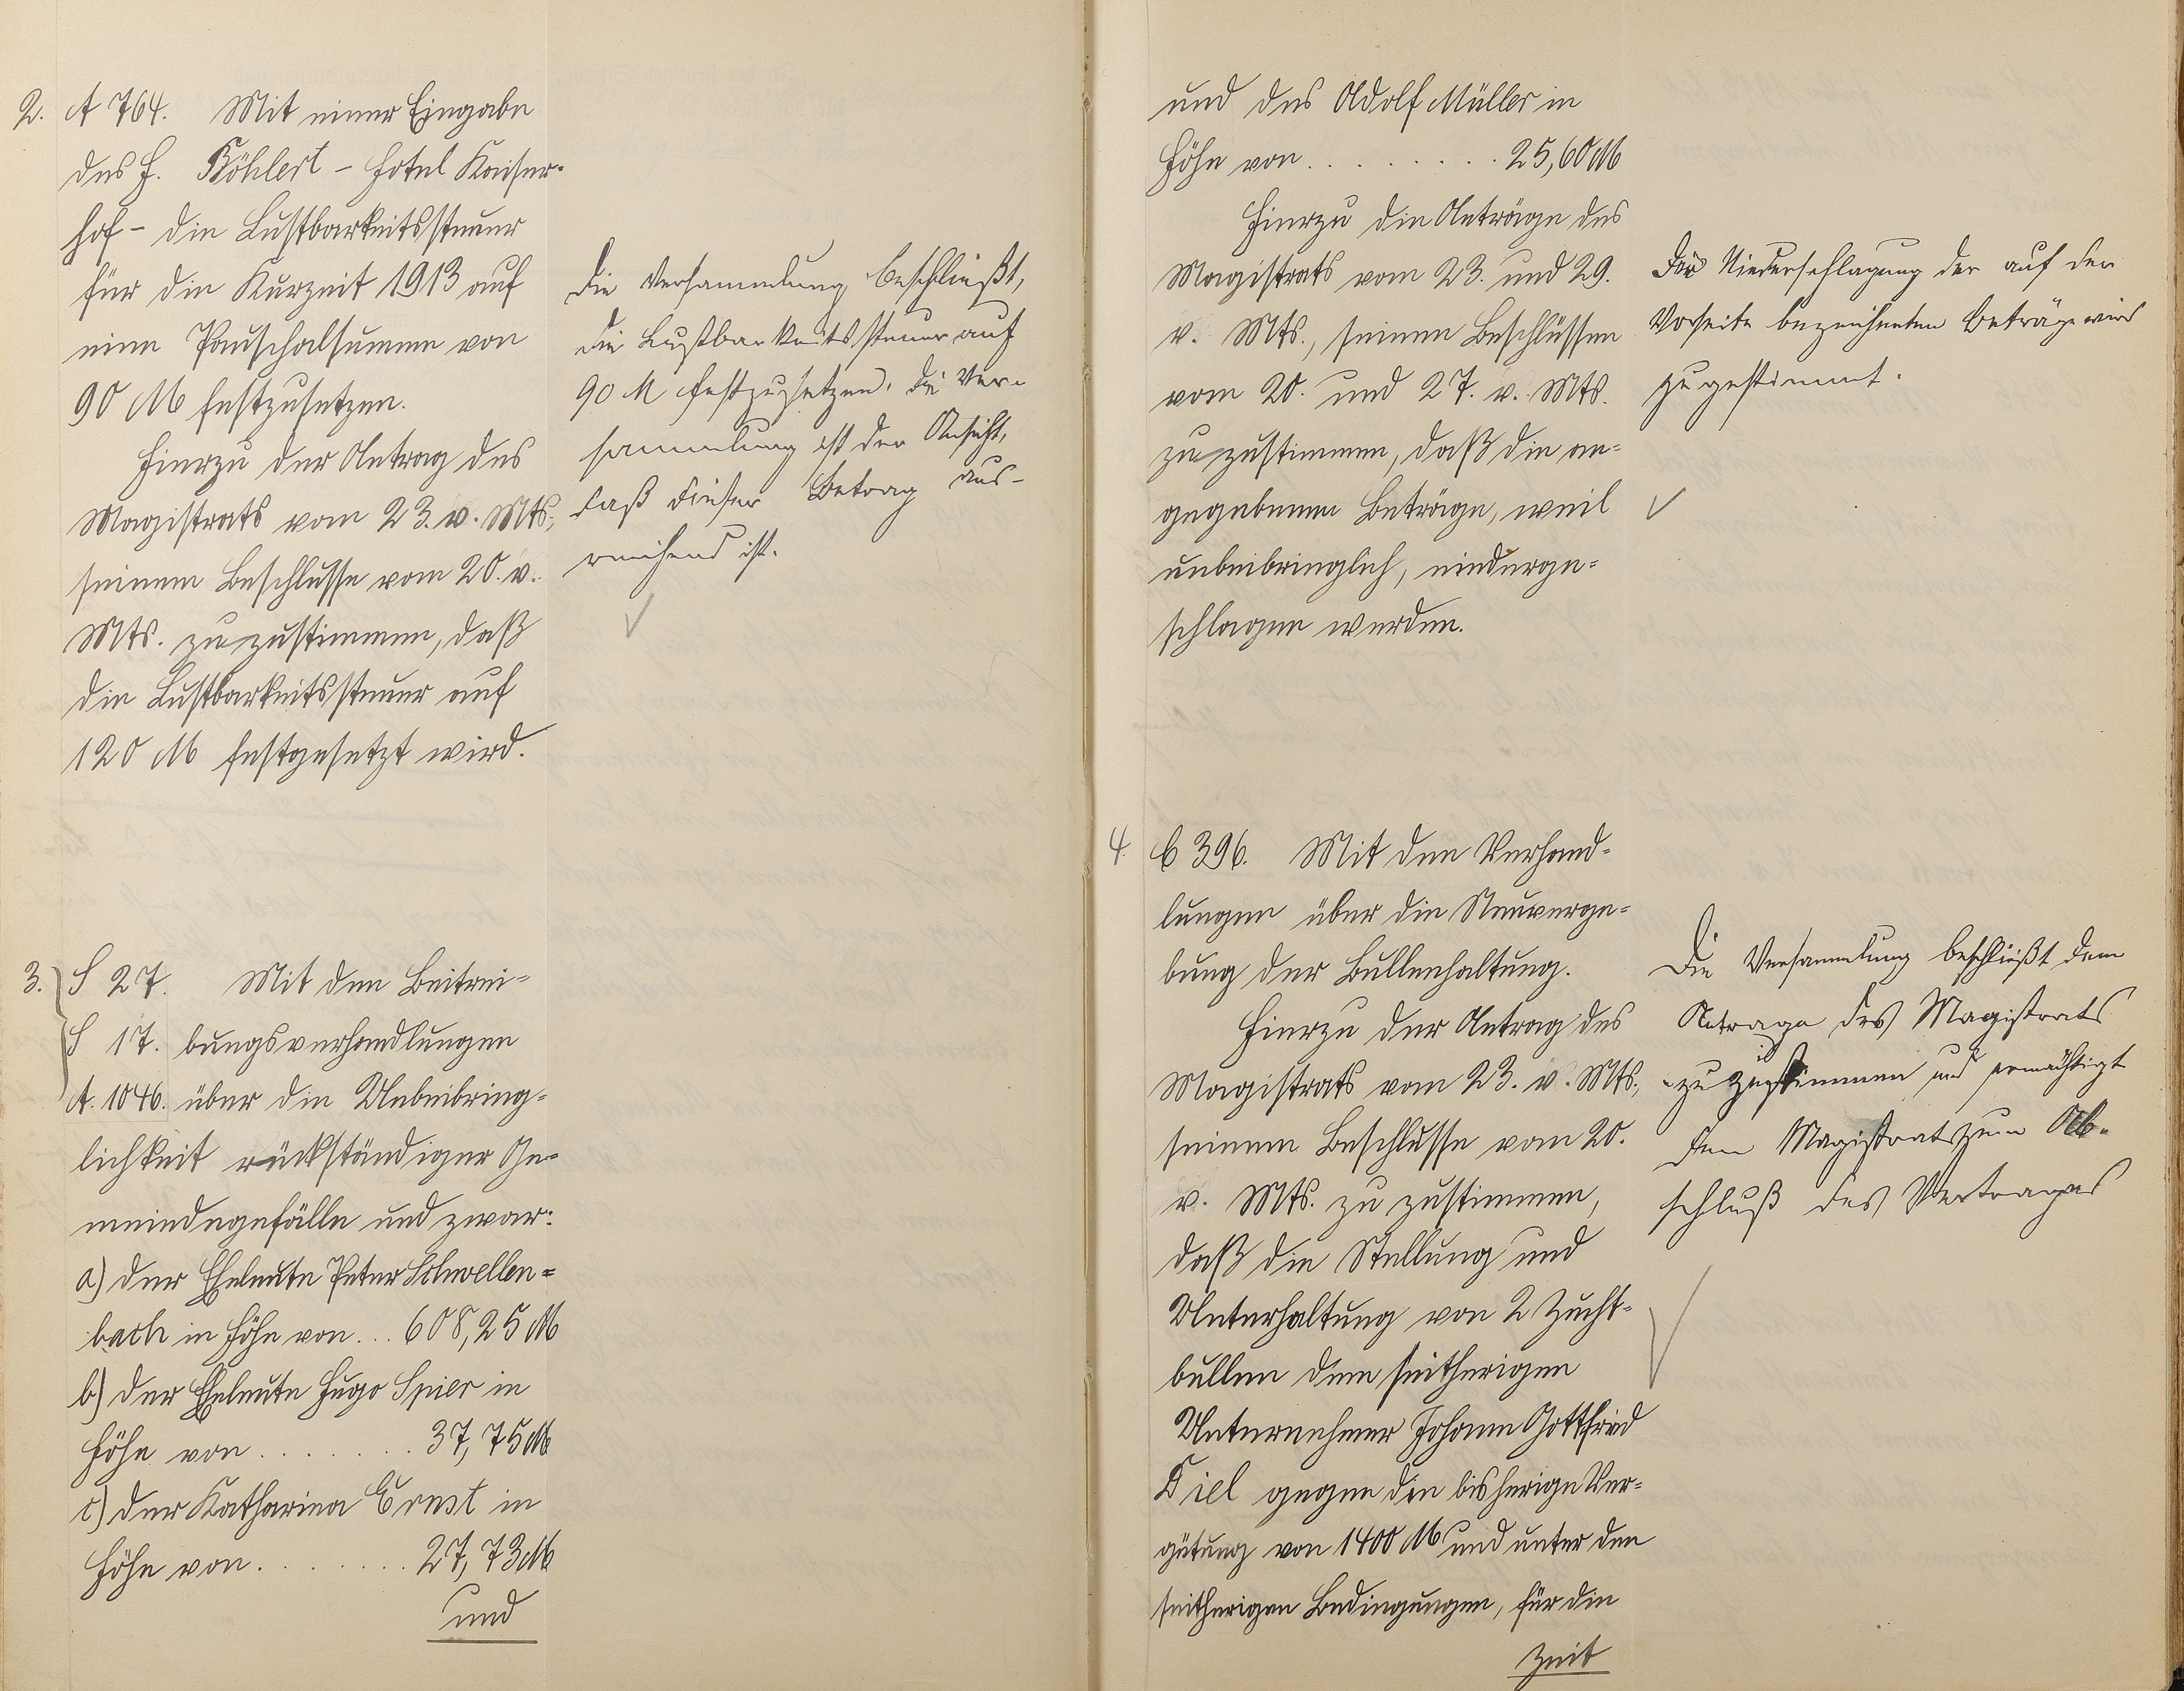 2. A 764. Mit einer Eingabe
des H. Köhlert - Hotel Kaiser-
hof - die Lustbarkeitssteuer
für die Kurzeit 1913 auf
eine Pauschalsumme von
90 M festzusetzen.
Hierzu der Antrag des
Magistrats vom 23. v. Mts.,
seinem Beschlusse vom 20. v.
Mts. zuzustimmen, daß
die Lustbarkeitssteuer auf
120 M festgesetzt wird.
Die Versammlung beschließt,
die Lustbarkeitssteuer auf
90 M festzusetzen. Die Ver-
sammlung ist der Ansicht,
daß dieser Betrag aus-
reichend ist.
3. S 27. Mit den Beitrei-
S 17. bungsverhandlungen
A. 1046. über die Unbeibring-
lichkeit rückständiger Ge-
meindegefälle und zwar:
a) der Eheleute Peter Schwellen-
bach in Höhe von ... 608,25 M
b) der Eheleute Hugo Spier in
Höhe von ....... 37,75 M
c) der Katharina Ernst in
Höhe von ....... 27,73 M
und
und des Adolf Müller in
Höhe von ......... 25,60 M
Hierzu die Anträge des
Magistrats vom 23. und 29.
v. Mts., seinen Beschlüssen
vom 20. und 27. v. Mts.
zuzustimmen, daß die an-
gegebenen Beträge, weil
unbeibringlich, niederge-
schlagen werden.
Der Niederschlagung der auf der
Vorseite bezeichneten Beträge wird
zugestimmt.
4. C 396. Mit den Verhand-
lungen über die Neuverge-
bung der Bullenhaltung.
Hierzu der Antrag des
Magistrats vom 23. v. Mts.,
seinem Beschlusse vom 20.
v. Mts. zu zustimmen,
daß die Stellung und
Unterhaltung von 2 Zucht-
bullen dem seitherigen
Unternehmer Johann Gottfried
Diel gegen die bisherige Ver-
gütung von 1400 M und unter den
seitherigen Bedingungen, für die
Zeit
Die Versammlung beschließt dem
Antrage des Magistrats
zu zustimmen und ermächtigt
den Magistrat zum Ab-
schluß des Vertrages